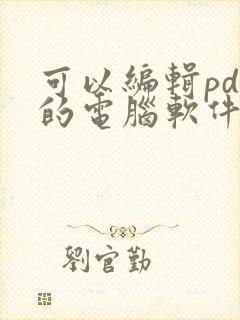 可以編輯pd
的電腦軟件
劉官勤